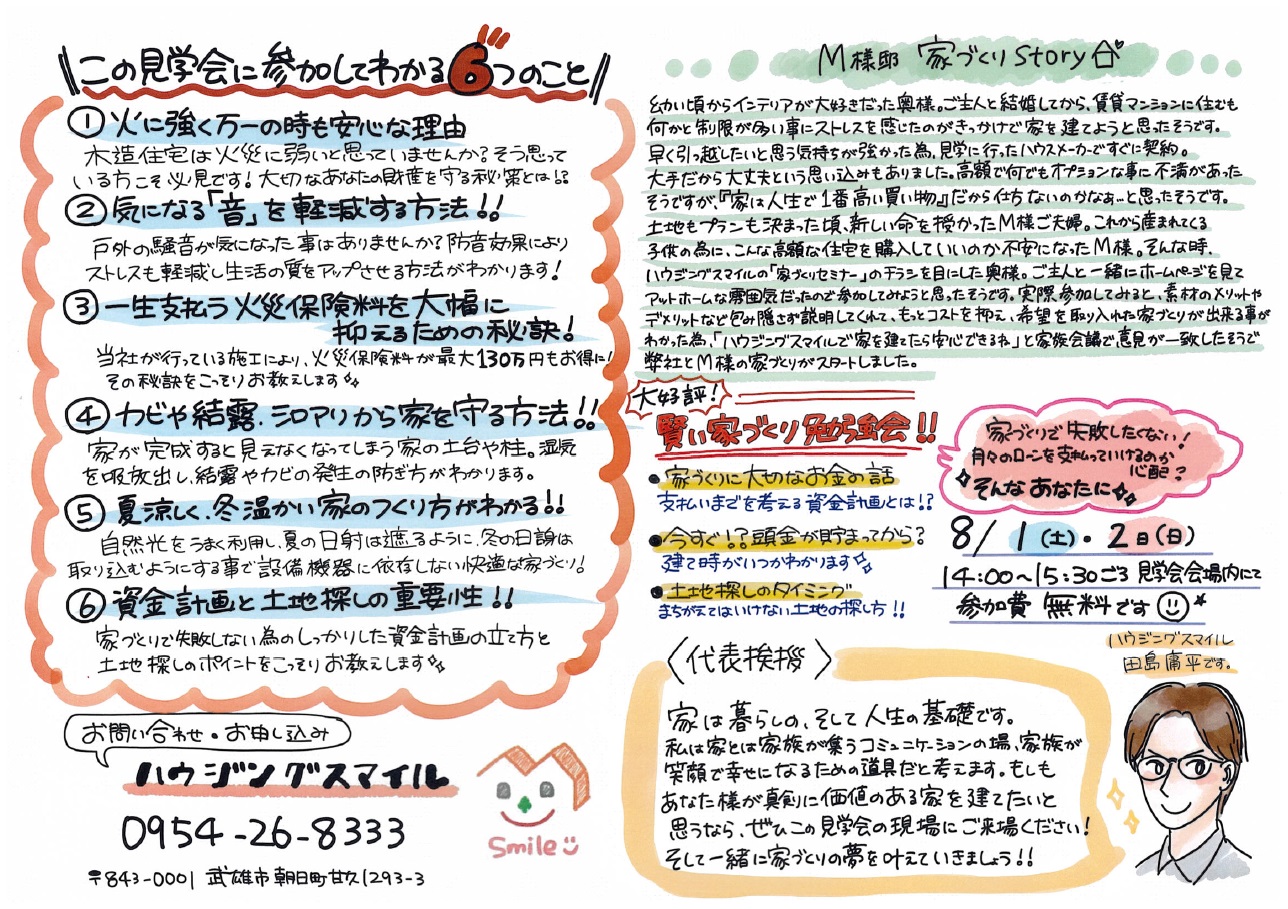 この見学会に参加してわかる6つのこと
① 火に強く万一の時も安心な理由
木造住宅は火災に弱いと思っていませんか？そう思って
いる方こそ必見です！大切なあなたの財産を守る秘策とは!?
② 気になる「音」を軽減する方法!!
戸外の騒音が気になった事はありませんか？防音効果により
ストレスも軽減し生活の質をアップさせる方法がわかります！
③ 一生支払う火災保険料を大幅に
抑えるための秘訣！
当社が行っている施工により、火災保険料が最大130万円もお得に！
その秘訣をこっそりお教えします
④ カビや結露、シロアリから家を守る方法!!
家が完成すると見えなくなってしまう家の土台や柱。湿気
を吸放出し、結露やカビの発生の防ぎ方がわかります。
⑤ 夏涼しく、冬温かい家のつくり方がわかる!!
自然光をうまく利用し、夏の日射は遮るように、冬の日謝は
取り込むようにする事で設備機器に依存しない快適な家づくり！
⑥ 資金計画と土地探しの重要性!!
家づくりで失敗しない為のしっかりした資金計画の立て方と
土地探しのポイントをこっそりお教えします
お問い合わせ・お申し込み
ハウジングスマイル
0954-26-8333
〒843-0001 武雄市朝日町甘久1293-3
Smile
M様邸 家づくりStory
幼い頃からインテリアが大好きだった奥様。ご主人と結婚してから、賃貸マンションに住むも
何かと制限が多い事にストレスを感じたのがきっかけで家を建てようと思ったそうです。
早く引っ越したいと思う気持ちが強かった為、見学に行ったハウスメーカーですぐに契約。
大手だから大丈夫という思い込みもありました。高額で何でもオプションな事に不満があった
そうですが、『家は人生で1番高い買い物』だから仕方ないのかなぁ…と思ったそうです。
土地もプランも決まった頃、新しい命を授かったM様ご夫婦。これから産まれてくる
子供の為に、こんな高額な住宅を購入していいのか不安になったM様。そんな時、
ハウジングスマイルの「家づくりセミナー」のチラシを目にした奥様。ご主人と一緒にホームページを見て
アットホームな雰囲気だったので参加してみようと思ったそうです。実際参加してみると、素材のメリットや
デメリットなど包み隠さず説明してくれて、もっとコストを抑え、希望を取り入れた家づくりが出来る事が
わかった為、「ハウジングスマイルで家を建てたら安心できるね」と家族会議で意見が一致したそうで
弊社とM様の家づくりがスタートしました。
大好評！
賢い家づくり勉強会!!
・家づくりに大切なお金の話
支払いまでを考える資金計画とは!?
・今すぐ!?頭金が貯まってから？
建て時がいつかわかります
・土地探しのタイミング
まちがえてはいけない土地の探し方!!
家づくりで失敗したくない！
月々のローンを支払っていけるのか
心配？
そんなあなたに
8/1(土)・2日(日)
14:00～15:30ごろ 見学会会場内にて
参加費 無料です
ハウジングスマイル
田島庸平です。
〈代表挨拶〉
家は暮らしの、そして人生の基礎です。
私は家とは家族が集うコミュニケーションの場、家族が
笑顔で幸せになるための道具だと考えます。もしも
あなた様が真剣に価値のある家を建てたいと
思うなら、ぜひこの見学会の現場にご来場ください！
そして一緒に家づくりの夢を叶えていきましょう!!